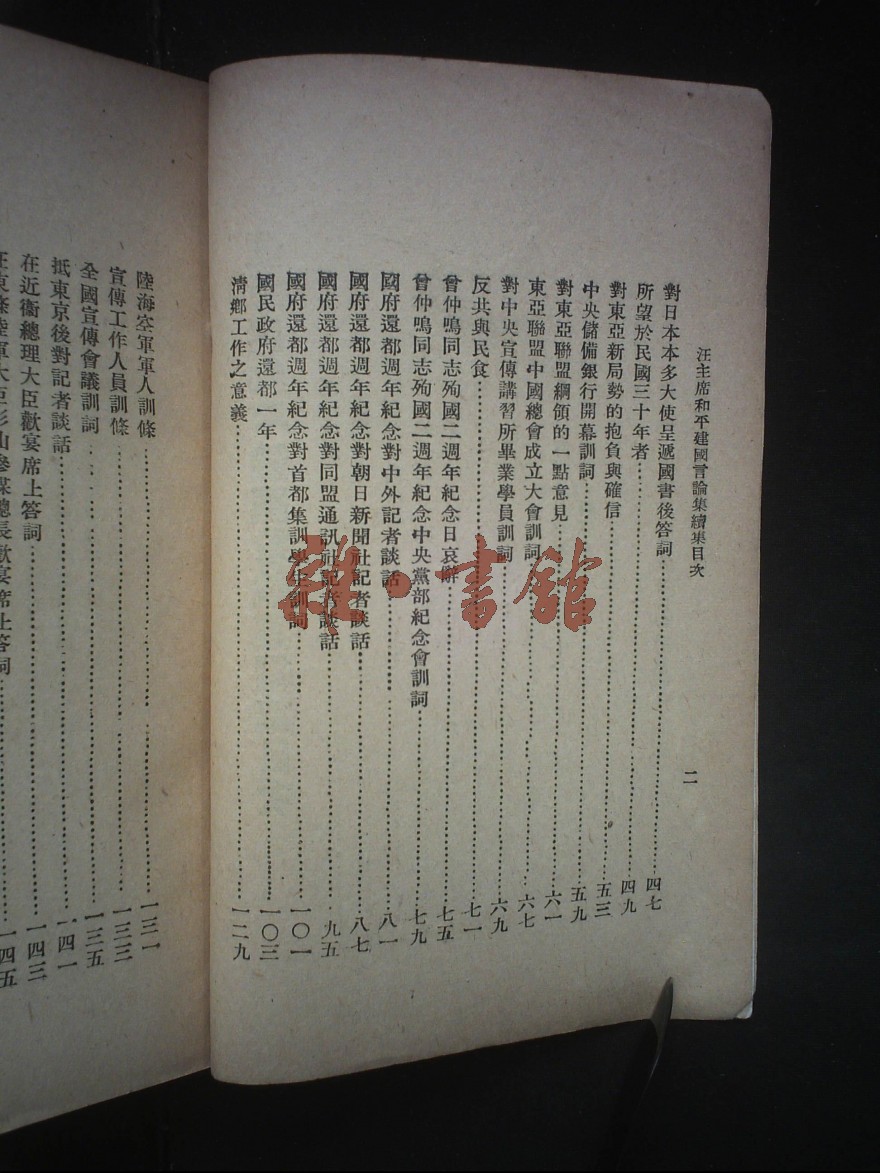 汪主席和平建國言論集續集目次
二
對日本本多大使呈遞國書後答詞……四七
所望於民國三十年者……四九
對東亞新局勢的抱負與確信……五三
中央儲備銀行開幕訓詞……五九
對東亞聯盟綱領的一點意見……六一
東亞聯盟中國總會成立大會訓詞……六七
對中央宣傳講習所畢業學員訓詞……六九
反共與民食……七一
曾仲鳴同志殉國二週年紀念日哀辭……七五
曾仲鳴同志殉國二週年紀念中央黨部紀念會訓詞……七九
國府還都週年紀念對中外記者談話……八一
國府還都週年紀念對朝日新聞社記者談話……八七
國府還都週年紀念對同盟通訊社記者談話……九五
國府還都週年紀念對首都集訓學生訓詞……一〇一
國民政府還都一年……一〇三
清鄉工作之意義……一二九
陸海空軍軍人訓條……一三一
宣傳工作人員訓條……一三三
全國宣傳會議訓詞……一三五
抵東京後對記者談話……一四一
在近衞總理大臣歡宴席上答詞……一四三
在東條陸軍大臣杉山參謀總長歡宴席上答詞……一四五
雜·書館